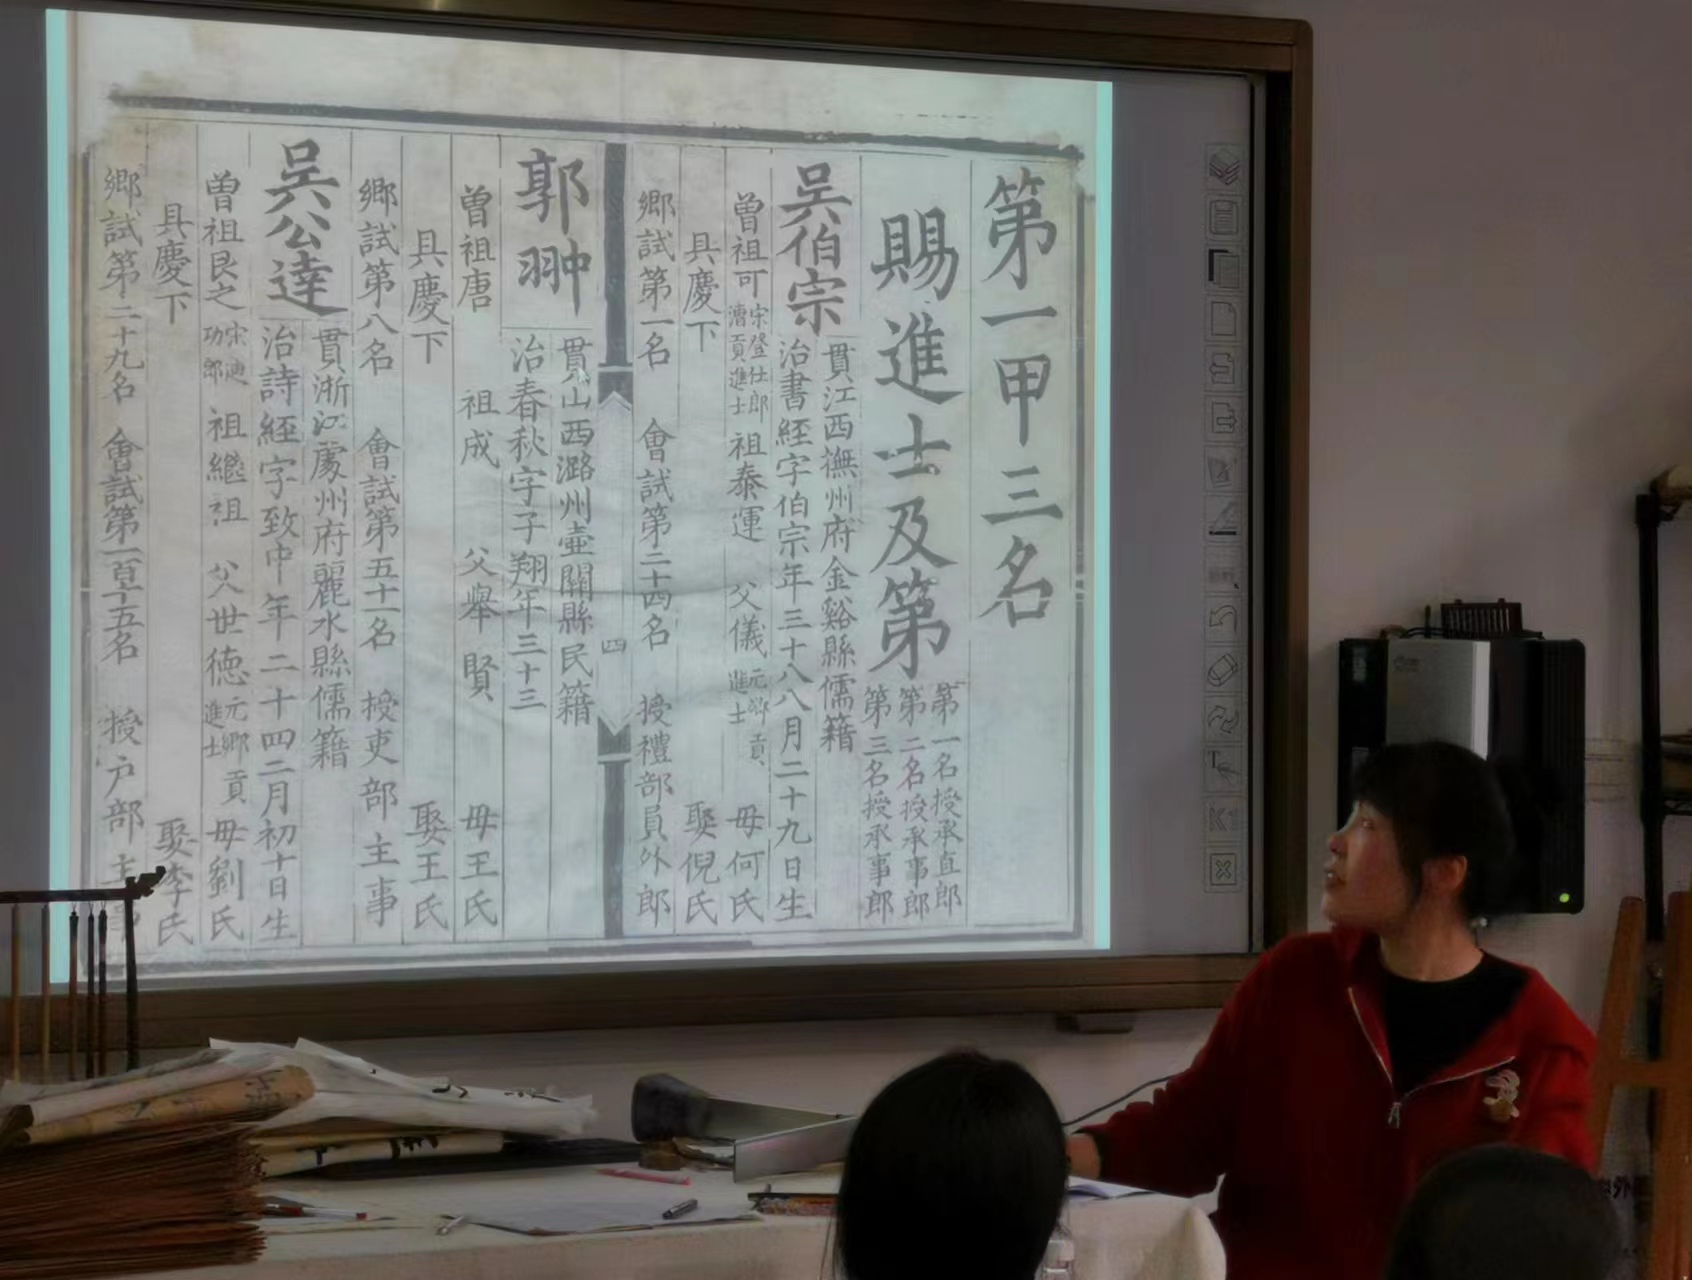 第一甲三名
賜進士及第
第一名授承直郎
第二名授承事郎
第三名授承事郎
吳伯宗
貫江西撫州府金谿縣儒籍
治書経字伯宗年三十八八月二十九日生
曽祖可 宋登仕郎漕貢進士 祖泰運 父儀 元鄉貢進士 母何氏
具慶下 娶倪氏
鄉試第一名 會試第二十四名 授禮部員外郎
四
郭翀
貫山西潞州壷關縣民籍
治春秋字子翔年三十三
曽祖唐 祖成 父舉賢 母王氏
具慶下 娶王氏
鄉試第八名 會試第五十一名 授吏部主事
吳公達
貫浙江處州府麗水縣儒籍
治詩経字致中年二十四二月初十日生
曽祖艮之 宋迪功郎 祖繼祖 父世德 元鄉貢進士 母劉氏
具慶下 娶李氏
鄉試第二十九名 會試第一百十五名 授户部主事